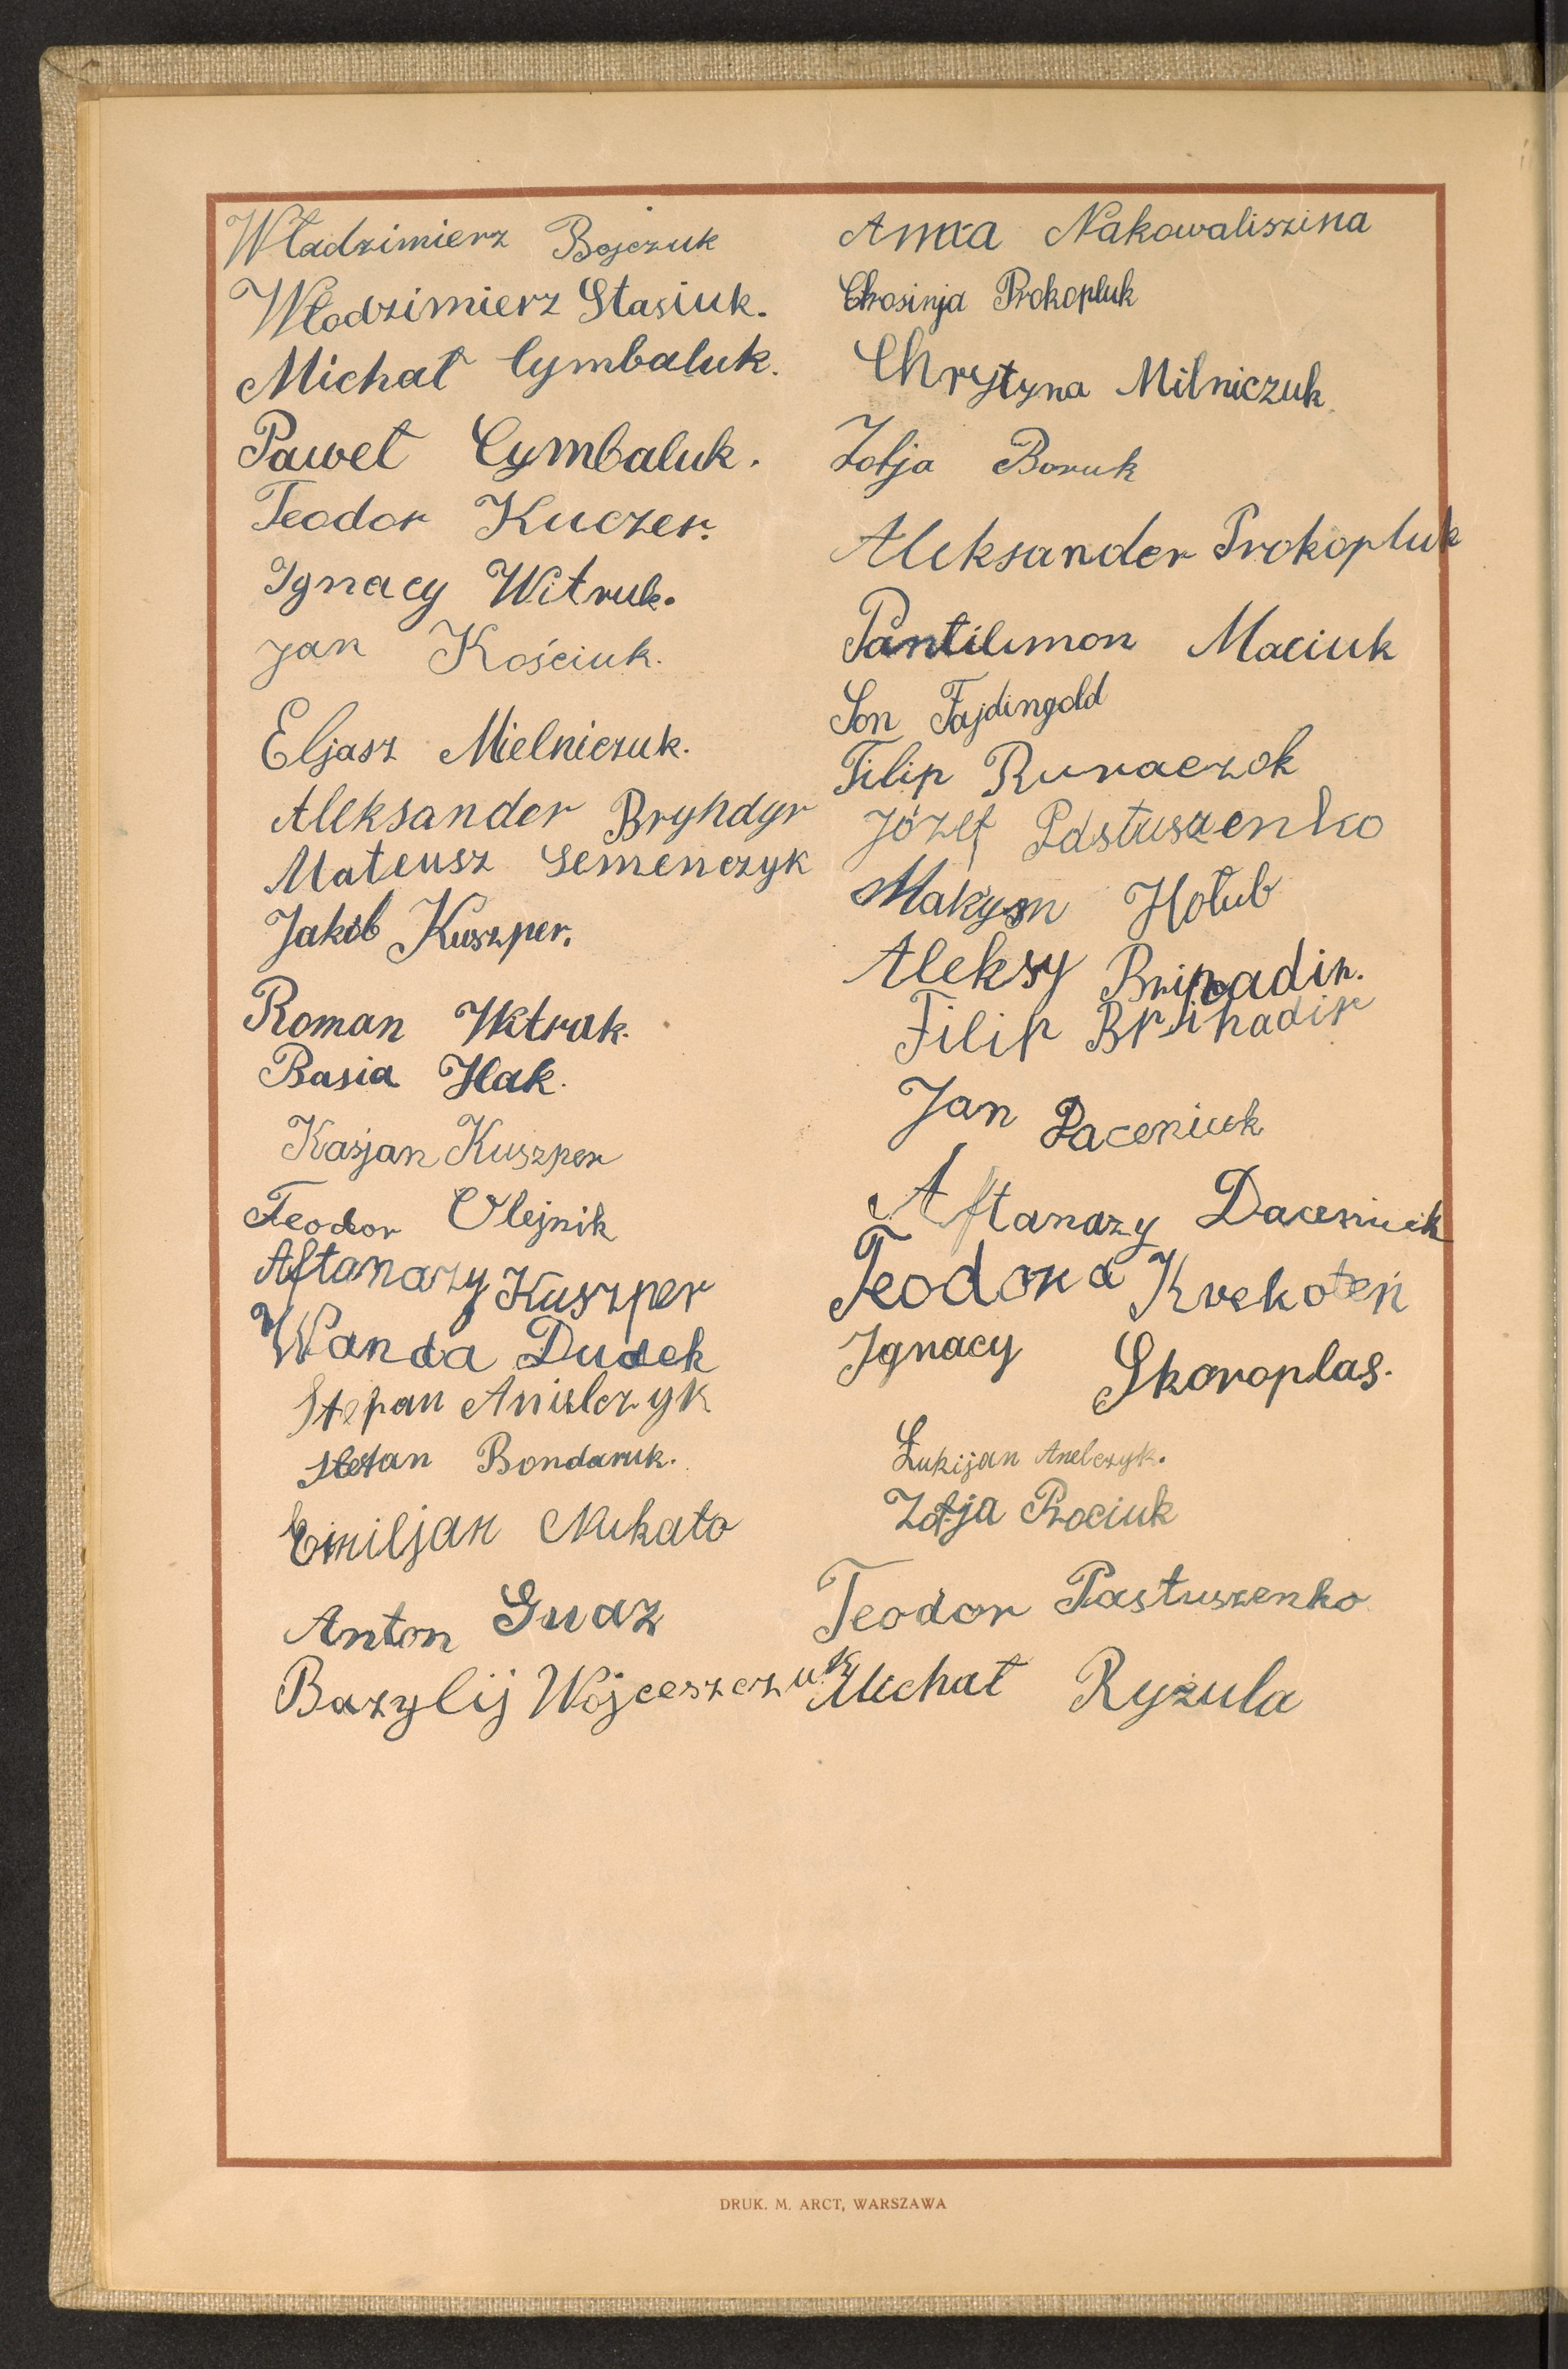 Władzimierz Bojczuk
Włodzimierz Stasiuk.
Michał Cymbaluk.
Paweł Cymbaluk.
Teodor Kuczer.
Ignacy Witruk.
Jan Kościuk.
Eljasz Mielniczuk.
Aleksander Bryhdyr
Mateusz Semenczyk
Jakób Kuszper.
Roman Witruk.
Basia Hak.
Kasjan Kuszper
Teodor Olejnik
Aftanazy Kuszper
Wanda Dudek
Stepan Anielczyk
Stefan Bondaruk.
Emiljan Mukało
Anton Gnaz
Bazylij Wojceszczuk
Anna Nakowaliszina
Chrosinja Prokopluk
Chrytyna Milniczuk
Zofja Boruk
Aleksander Prokopluk
Pantilimon Maciuk
Son Fajdingold
Filip Runaczok
Józef Pastuszenko
Maksym Hołub
Aleksy Brihadir.
Filip Brihadir
Jan Daceniuk
Aftanazy Daceniuk
Teodora Krekoteń
Ignacy Skoroplas.
Łukijan Anelczyk.
Zofja Prociuk
Teodor Pastuszenko
Michał Ryżula
DRUK. M. ARCT, WARSZAWA